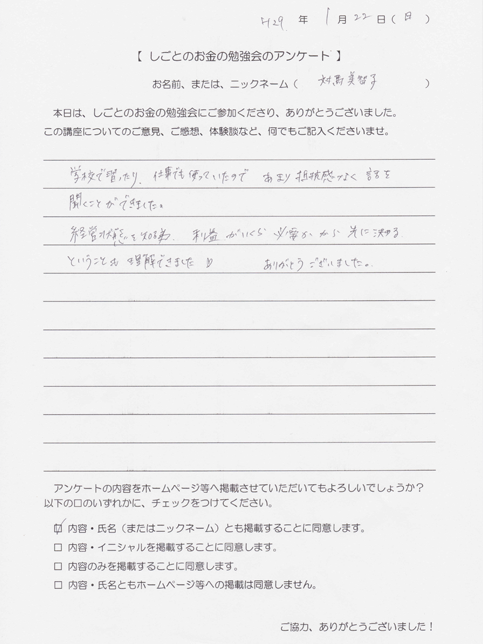 H29 年 1月 22日（日）
【 しごとのお金の勉強会のアンケート 】
お名前、または、ニックネーム（ 対馬美智子 ）
本日は、しごとのお金の勉強会にご参加くださり、ありがとうございました。
この講座についてのご意見、ご感想、体験談など、何でもご記入くださいませ。
学校で習ったり、仕事でも使っていたので あまり抵抗感なく 話を
聞くことができました。
経営状態を知る為、利益がいくら必要かから 先に決める
ということも 理解できました ありがとうございました。
アンケートの内容をホームページ等へ掲載させていただいてもよろしいでしょうか？
以下の口のいずれかに、チェックをつけてください。
☑ 内容・氏名（またはニックネーム）とも掲載することに同意します。
□ 内容・イニシャルを掲載することに同意します。
□ 内容のみを掲載することに同意します。
□ 内容・氏名ともホームページ等への掲載は同意しません。
ご協力、ありがとうございました！